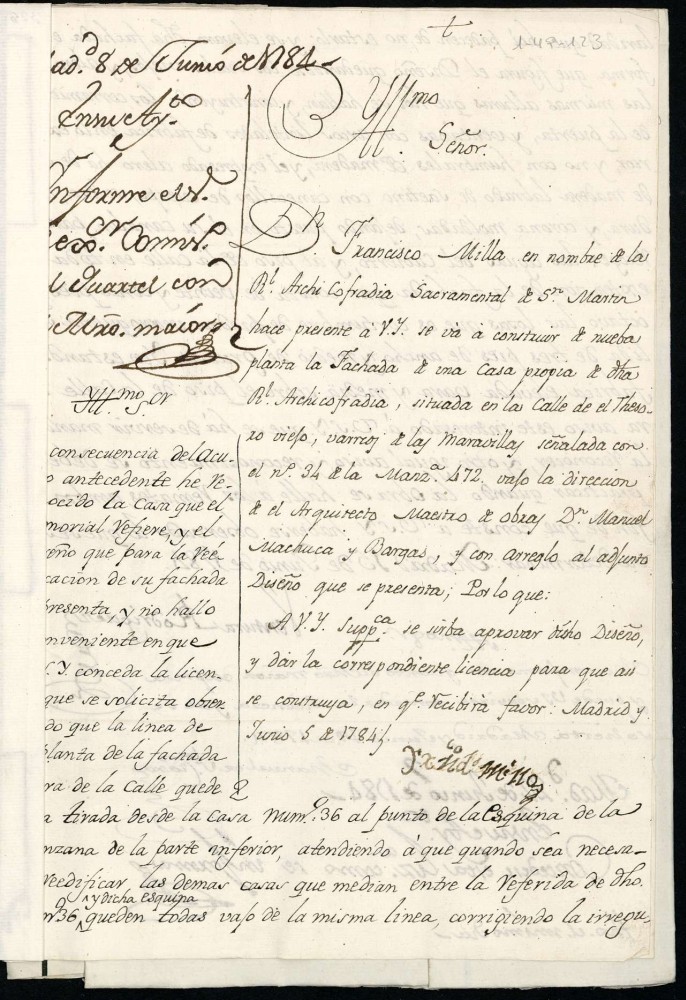 t
1-49-123
ad.d 8 de Junio de 1784
En su Ay.to
Informe el S.r
Cav.o Comis.o
l Quartel con
Mro. maior
Yll.mo S.or
consecuencia del acu-
o antecedente he Re-
ocido la Casa que el
morial refiere, y el
eño que para la ree-
cacion de su fachada
presenta, y no hallo
nveniente en que
S.Y. conceda la licen.a
que se solicita obser
do que la linea de
planta de la fachada
ra de la Calle quede
Yllmo
Señor.
Dn Francisco Milla en nombre de la
Rl. Archi Cofradia Sacramental de Sn. Martin
hace presente à V.Y. se và à construir de nueba
planta la Fachada de una Casa propia de dha
Rl. Archicofradia, situada en la Calle de el Theso-
ro viejo, varrio de las Maravillas señalada con
el nº. 34 de la Manz.a 472. vajo la direccion
de el Arquitecto Maestro de obras Dn. Manuel
Machuca y Bargas, y con arreglo al adjunto
Diseño que se presenta; Por lo que:
A V.Y. Supp.ca se sirba aprovar dicho Diseño,
y dar la correspondiente licencia para que asi
se construya, en q.e recibirà favor: Madrid y
Junio 5 de 1784
Fran.co Milla
a tirada desde la casa num.o 36 al punto de la Esquina de la
nzana de la parte inferior, atendiendo à que quando sea necesa-
reedificar las demas casas que median entre la referida de dho.
n.o 36 y dicha esquina queden todas vajo de la misma linea, corrigiendo la irregu-